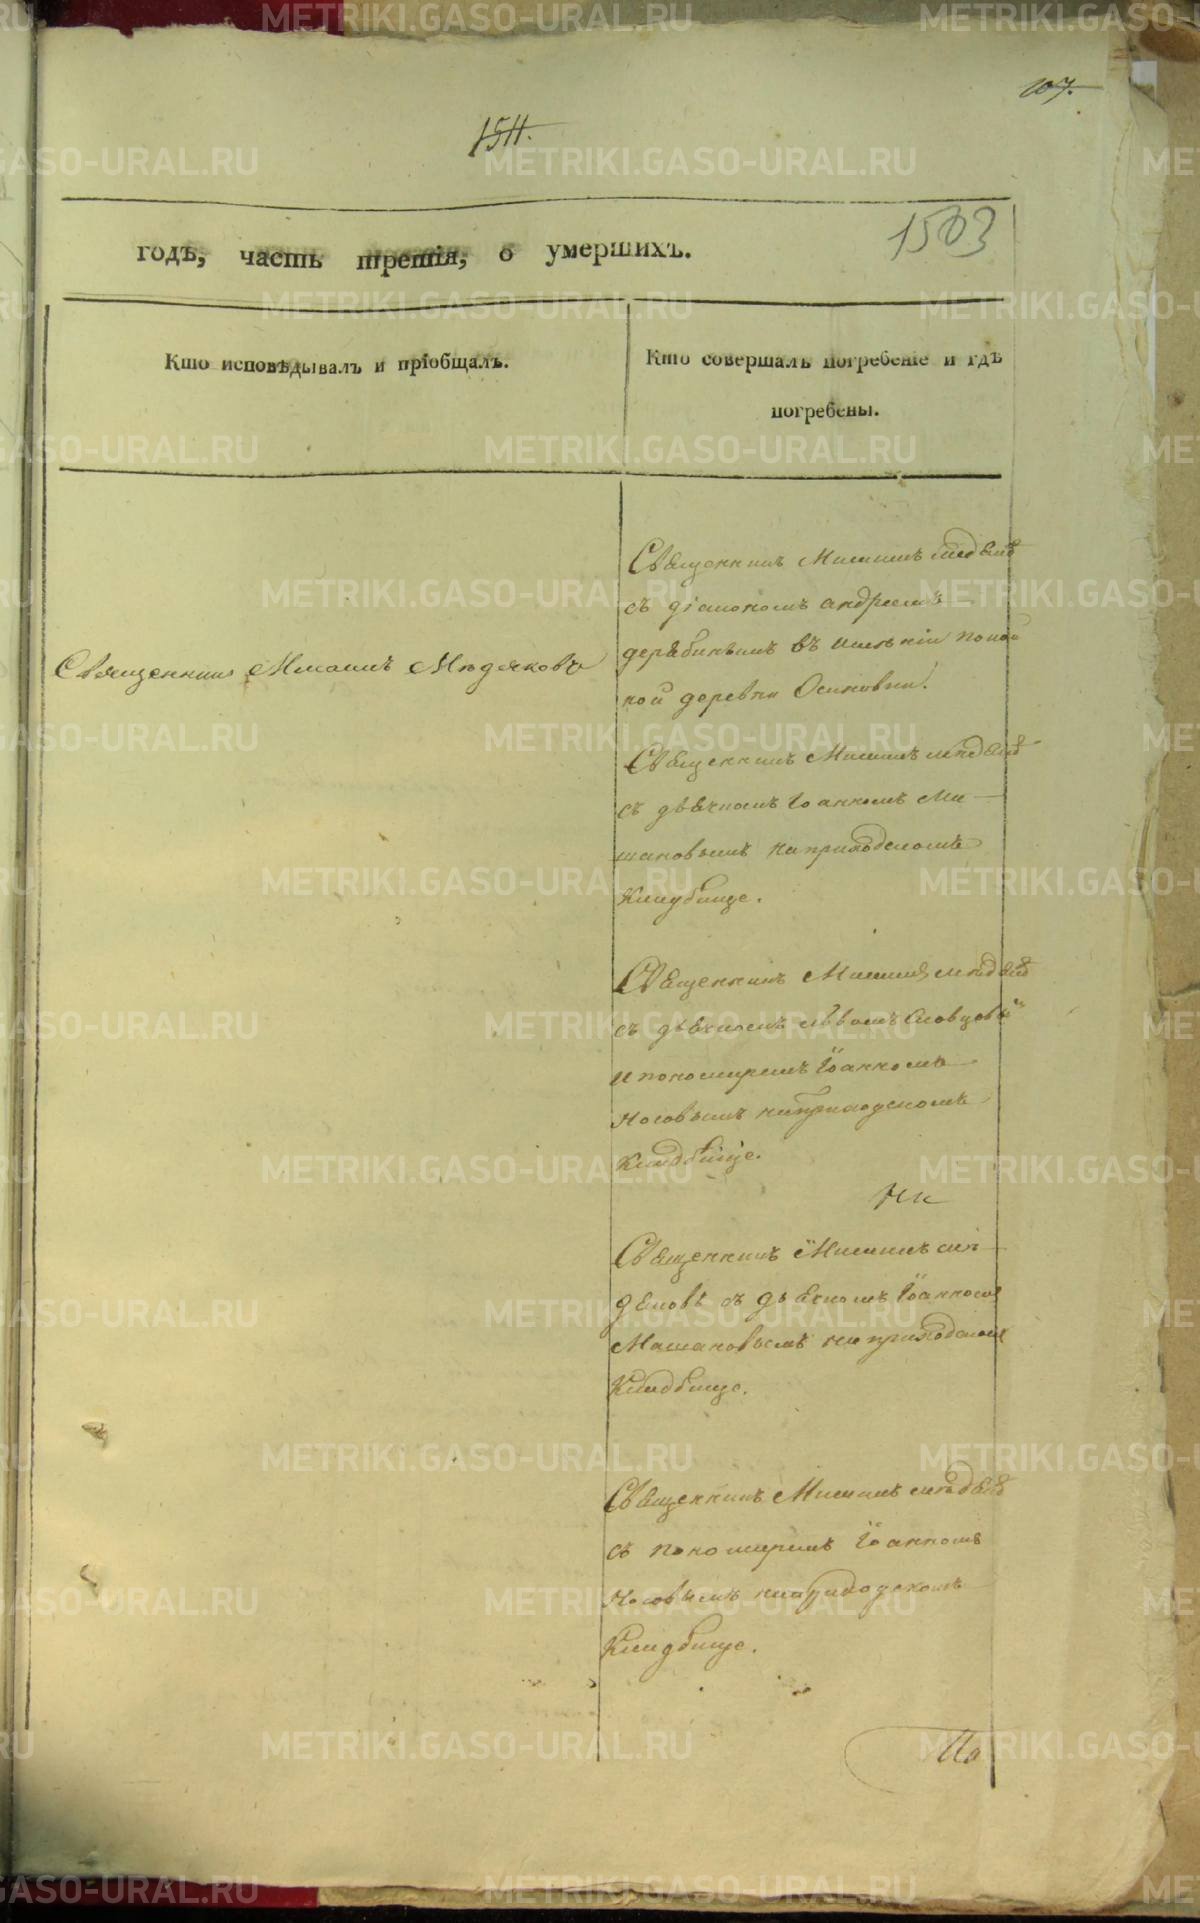 107.
1511.
1503
годъ, часть третія, о умершихъ.
Кто исповѣдывалъ и пріобщалъ.
Кто совершалъ погребеніе и гдѣ
погребены.
Священникъ Михаилъ Мѣдяковъ
Священникъ Михаилъ
съ діакономъ андреемъ
въ
ной деревни Осиновки.
Священникъ Михаилъ
съ дьячкомъ Іоанномъ Ма
шановымъ на приходскомъ
Кладбище.
Священникъ Михаилъ
съ дьячкомъ Словцовы
и пономаремъ Іоанномъ
Носовымъ на приходскомъ
Кладбище.
Священникъ Михаилъ мѣ
дяковъ съ дьячкомъ Іоанномъ
Машановымъ на приходскомъ
Кладбище.
Священникъ Михаилъ
съ пономаремъ Іоанномъ
Носовымъ на приходскомъ
Кладбище.
По
METRIKI.GASO-URAL.RU